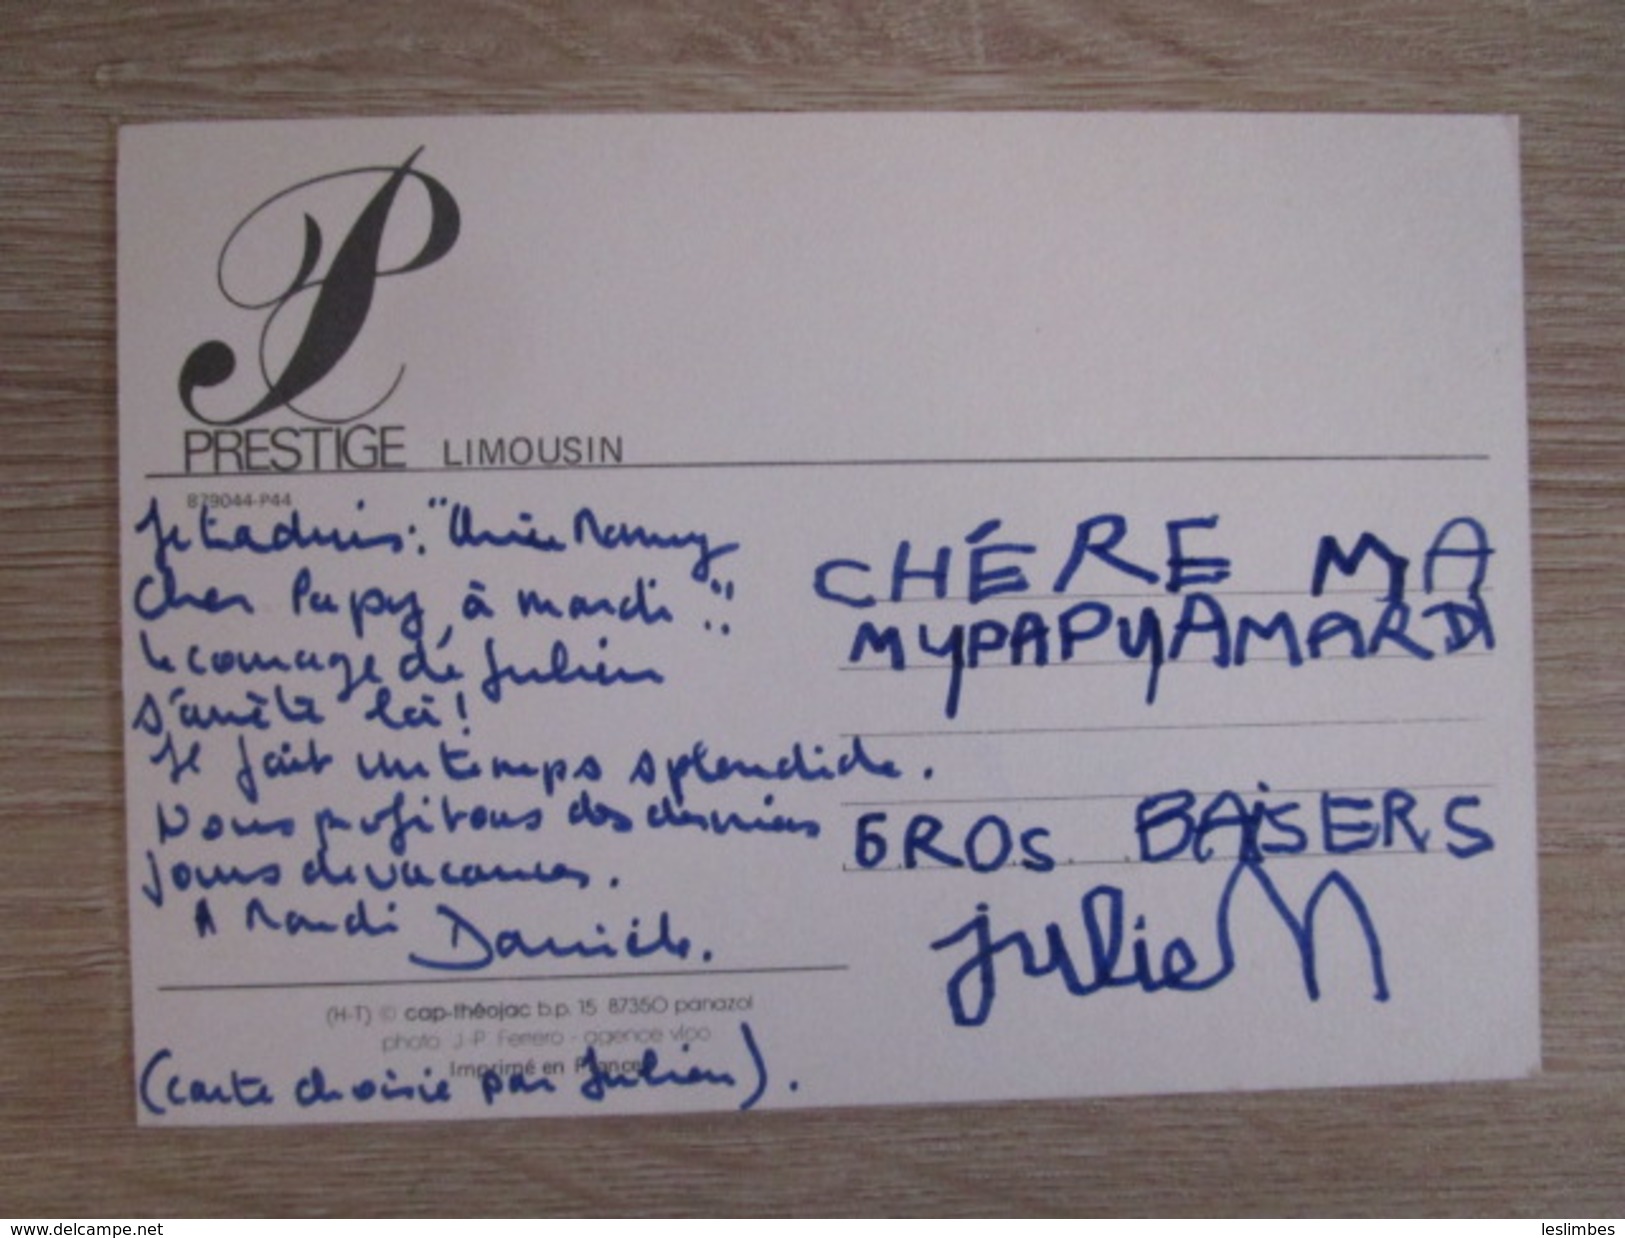 PRESTIGE LIMOUSIN
879044-P44
Je traduis : "Chère Mamy
Cher Papy, à mardi".
Le courage de Julien
s'arrête là !
Il fait un temps splendide.
Nous profitons des derniers
jours de vacances.
A Mardi Danièle.
CHÉRE MA
MYPAPYAMARDI
GROS BAiSERS
julieN
(H-T) © cap-théojac b.p. 15 87350 panazol
photo J-P Ferrero - agence vlpo
Imprimé en France
(carte choisie par Julien).
www.delcampe.net
leslimbes